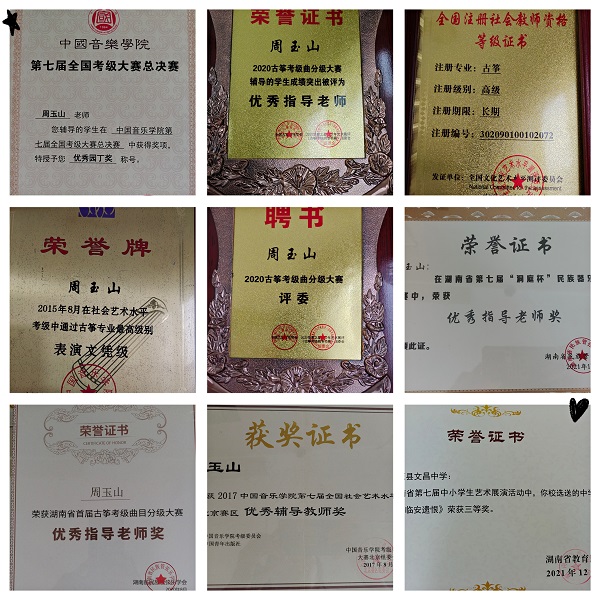 中國音樂學院
第七届全国考级大赛总决赛
周玉山 老师
您辅导的学生在 中国音乐学院第
七届全国考级大赛总决赛 中获得奖项。
特授予您 优秀园丁奖 称号。
荣誉证书
周玉山
2020古筝考级曲分级大赛
辅导的学生成绩突出被评为
优秀指导老师
全国注册社会教师资格
等级证书
注册专业：古筝
注册级别：高级
注册期限：长期
注册编号：302090100102072
发证单位：全国文化艺术水平测试委员会
National Committee for the assessment
荣誉牌
周玉山
2015年8月在社会艺术水平
考级中通过古筝专业最高级别
表演文凭级
聘书
周玉山
2020古筝考级曲分级大赛
评委
荣誉证书
玉山：
在湖南省第七届“洞庭杯”民族器
赛中，荣获
优秀指导老师奖
此证。
湖南省
荣誉证书
CERTIFICATE OF HONOR
周玉山
荣获湖南省首届古筝考级曲目分级大赛
优秀指导老师奖
获奖证书
玉山
获 2017 中国音乐学院第七届全国社会艺术水平
京赛区 优秀辅导教师奖
中国音乐学院考级委员会
中国青年出版社
中国音乐学院考级
大赛北京组委
2017 年 8 月
荣誉证书
县文昌中学：
省第七届中小学生艺术展演活动中，你校选送的中学
临安遗恨》荣获三等奖。
湖南省教育
2021 年 12